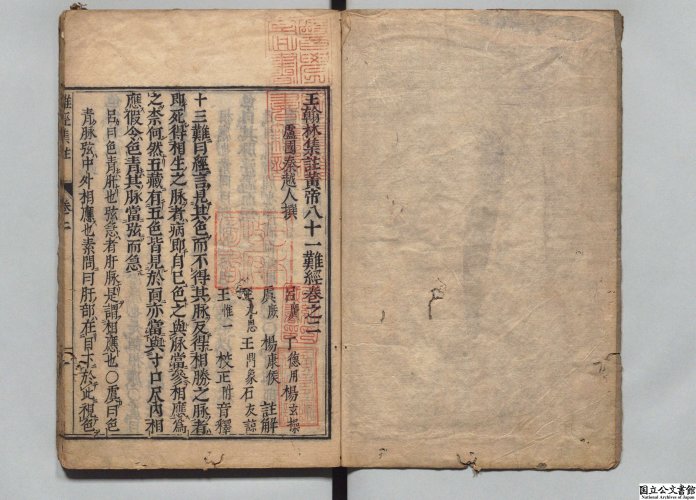 王翰林集註黃帝八十一難經卷之二
盧國秦越人撰
呂廣 丁德用 楊玄操
虞庶 楊康侯 註解
王九思 王鼎象 石友諒
王惟一 校正附音釋
十三難曰經言見其色而不得其脉反得相勝之脉者
即死得相生之脉者病即自已色之與脉當參相應為
之柰何然五藏有五色皆見於面亦當與寸口尺內相
應假令色青其脉當弦而急
呂曰色青肝也弦急者肝脉是謂相應也〇虞曰色
青脉弦中外相應也素問曰肝部在目下於此視色
難經集註 卷二
国立公文書館
National Archives of Japan